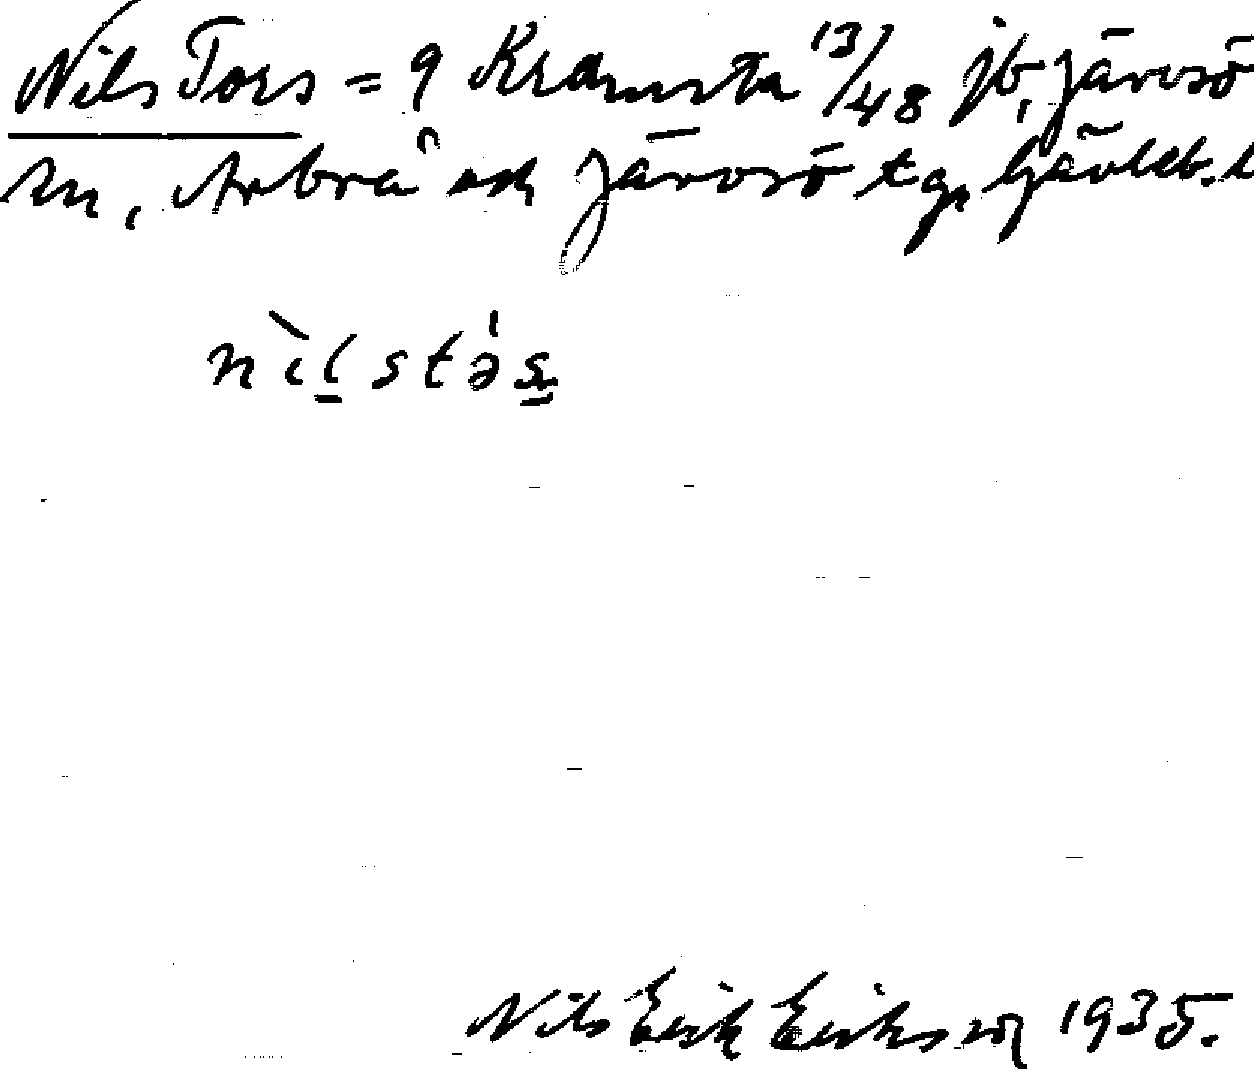 Nils Tors = 9 Kramsta 13/48 jb, Järvsö
sn, Arbrå och Järvsö tg, Gävleb. l
nìlstə́s
Nils Erik Eriksson 1935.